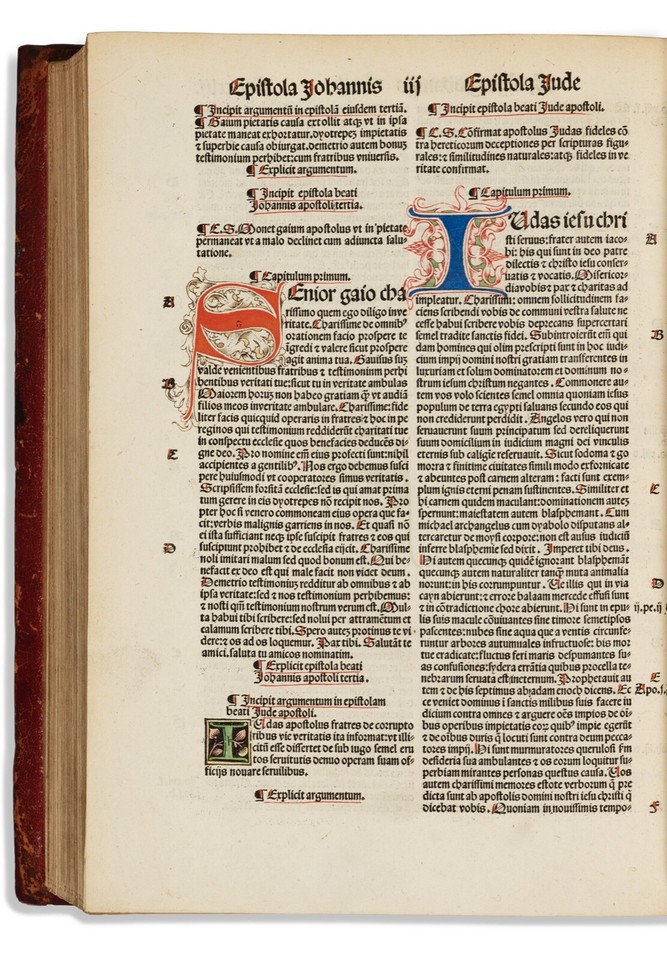 Epistola Johannis iij
Epistola Jude
¶ Incipit argumentū in epistolā eiusdem tertiā.
¶ Gaium pietatis causa extollit atqꝫ vt in ipsa
pietate maneat exhortatur.dyotrepeꝫ impietatis
⁊ superbie causa obiurgat.demetrio autem bonuꝫ
testimonium perhibet:cum fratribus vniuersis.
¶ Explicit argumentum.
¶ Incipit epistola beati
Johannis apostoli tertia.
¶ C.S. Monet gaium apostolus vt in pietate
permaneat vt a malo declinet cum adiuncta salu-
tatione.
¶ Capitulum primum.
A
SEnior gaio cha
rissimo quem ego diligo inve
ritate.Charissime de omnibꝰ
orationem facio prospere te
ingredi ⁊ valere sicut prospere
agit anima tua. Gauisus suꝫ
valde venientibus fratribus ⁊ testimonium perhi
B
bentibus veritati tue:sicut tu in veritate ambulas
Maiorem horuꝫ non habeo gratiam qꝫ vt audiā
filios meos inveritate ambulare. Charissime:fide
liter facis quicquid operaris in fratres:⁊ hoc in pe
regrinos qui testimonium reddiderūt charitati tue
in conspectu ecclesie quos benefacies deducēs di-
C
gne deo. Pro nomine em̄ eius profecti sunt:nihil
accipientes a gentilibꝰ. Nos ergo debemus susci
pere huiusmodi vt cooperatores simus veritatis.
Scripsissem forsitā ecclesie:sed is qui amat prima
tum gerere in eis dyotrepes nō recipit nos. Pro
pter hoc si venero commoneam eius opera que fa-
cit:verbis malignis garriens in nos. Et quasi nō
ei ista sufficiant neqꝫ ipse suscipit fratres ⁊ eos qui
D
susciptunt prohibet ⁊ de ecclesia eijcit. Charissime
noli imitari malum sed quod bonum est. Qui be-
nefacit ex deo est qui male facit non videt deum.
Demetrio testimoniuꝫ redditur ab omnibus ⁊ ab
ipsa veritate:sed ⁊ nos testimonium perhibemus:
⁊ nosti qm̄ testimonium nostrum verum est. Mul-
ta habui tibi scribere:sed nolui per attramētum et
calamum scribere tibi. Spero autez protinus te vi
dere:⁊ os ad os loquemur. Pax tibi. Salutāt te
amici.saluta tu amicos nominatim.
¶ Explicit epistola beati
Johannis apostoli tertia.
¶ Incipit argumentum in epistolam
beati Jude apostoli.
IUdas apostolus fratres de corrupto
ribus vie veritatis ita informat:vt illi-
citū esse dissertet de sub iugo semel eru
tos seruitutis denuo operam suam of-
ficijs nouare seruilibus.
¶ Explicit argumentum.
¶ Incipit epistola beati Jude apostoli.
¶ C.S. Cōfirmat apostolus Judas fideles cō
tra hereticorum deceptiones per scripturas figu-
rales:⁊ similitudines naturales:atqꝫ fideles in ve
ritate confirmat.
¶ Capitulum primum.
A
IUdas iesu chri
sti seruus:frater autem iaco-
bi: his qui sunt in deo patre
dilectis ⁊ christo iesu conser-
uatis ⁊ vocatis. Misericor-
dia vobis ⁊ pax ⁊ charitas ad
impleatur. Charissimi: omnem sollicitudinem fa-
ciens scribendi vobis de communi vestra salute ne
cesse habui scribere vobis deprecans supercertari
B
semel tradite sanctis fidei. Subintroierūt em̄ qui
dam homines qui olim prescripti sunt in hoc iudi-
cium impij domini nostri gratiam transferentes in
luxuriam et solum dominatorem et dominum no-
strum iesum christum negantes. Commonere au-
tem vos volo scientes semel omnia quoniam iesus
populum de terra egypti saluans secundo eos qui
non crediderunt perdidit. Angelos vero qui non
seruauerunt suum principatum sed dereliquerunt
suum domicilium in iudicium magni dei vinculis
eternis sub caligie reseruauit. Sicut sodoma ⁊ go
morra ⁊ finitime ciuitates simili modo exfornicate
⁊ abeuntes post carnem alteram: facti sunt exem-
C
plum ignis eterni penam sustinentes. Similiter et
hi carnem quidem maculant:dominationem auteꝫ
spernunt:maiestatem autem blasphemant. Cum
michael archangelus cum dyabolo disputans al-
tercaretur de moysi corpore:non est ausus iudiciū
inferre blasphemie sed dixit. Imperet tibi deus.
Hi autem quecunqꝫ quidē ignorant blasphemāt
quecunqꝫ autem naturaliter tanqꝫ muta animalia
D
norunt:in his corrumpuntur. Ue illis qui in via
cayn abierunt:⁊ errore balaam mercede effusi sunt
⁊ in cōtradictione chore abierunt. Hi sunt in epu-
ij.pe.ij
lis suis macule cōuiuantes sine timore semetipsos
pascentes:nubes sine aqua que a ventis circunfe-
runtur arbores autumnales infructuose: bis mor
tue eradicate:fluctus feri maris despumantes su-
as confusiones:sydera errātia quibus procella te-
E
nebrarum seruata est ineternum. Prophetauit au
tem ⁊ de his septimus ab adam enoch dicens. Ec
Apo.j.
ce veniet dominus ī sanctis milibus suis facere iu
dicium contra omnes ⁊ arguere oēs impios de oī-
bus operibus impietatis eoꝝ quibꝰ impie egerūt
⁊ de oībus duris q̄ locuti sunt contra deum pecca-
tores impij. Hi sunt murmuratores querulosi s̄m
desideria sua ambulantes ⁊ os eorum loquitur su-
perbiam mirantes personas questus causa. Uos
autem charissimi memores estote verborum q̄ pre
dicta sunt ab apostolis domini nostri iesu christi q̄
F
dicebat vobis. Quoniam in nouissimis tempo-